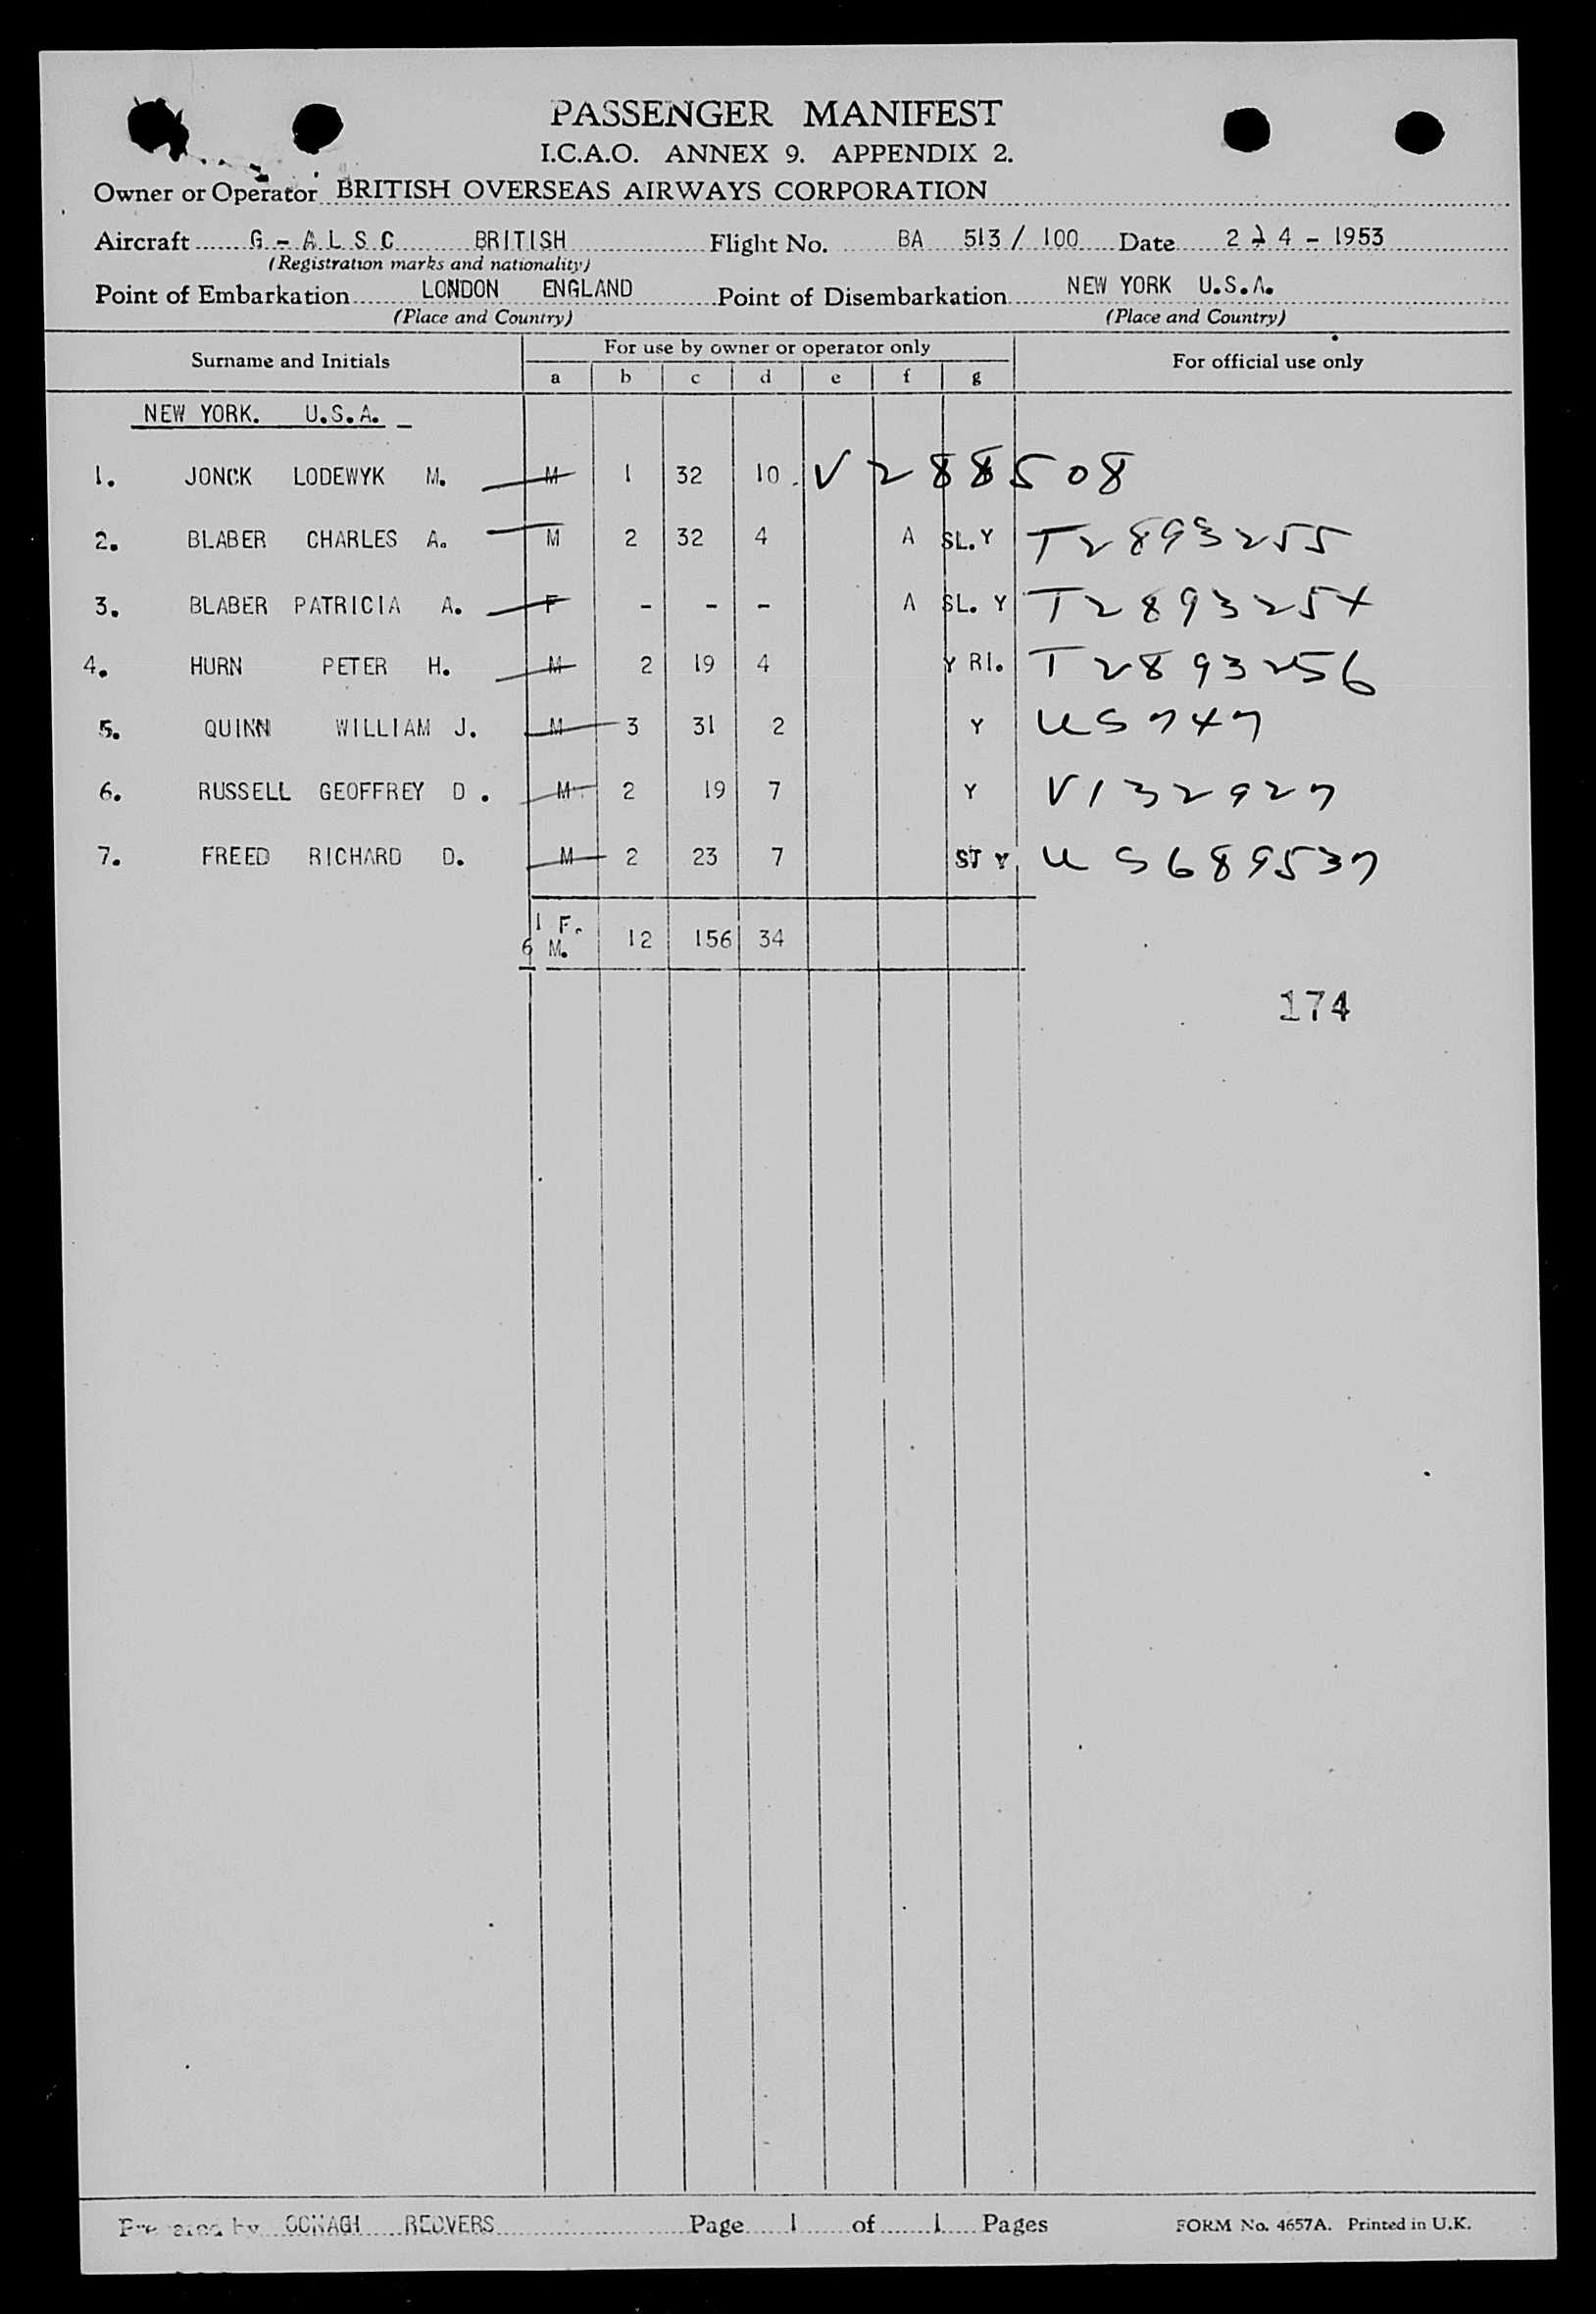 PASSENGER MANIFEST
I.C.A.O. ANNEX 9. APPENDIX 2.
Owner or Operator BRITISH OVERSEAS AIRWAYS CORPORATION
Aircraft G - A L S C BRITISH Flight No. BA 513 / 100 Date 2 4 - 1953
(Registration marks and nationality)
Point of Embarkation LONDON ENGLAND Point of Disembarkation NEW YORK U.S.A.
(Place and Country) (Place and Country)
Surname and Initials For use by owner or operator only For official use only
a b c d e f g
NEW YORK. U.S.A.
1. JONCK LODEWYK M. M 1 32 10 V 288508
2. BLABER CHARLES A. M 2 32 4 A SL. Y T2893255
3. BLABER PATRICIA A. F - - - A SL. Y T2893254
4. HURN PETER H. M 2 19 4 Y RI. T2893256
5. QUINN WILLIAM J. M 3 31 2 Y US747
6. RUSSELL GEOFFREY D. M 2 19 7 Y V132927
7. FREED RICHARD D. M 2 23 7 ST Y US689537
1 F.
6 M. 12 156 34
174
Prepared by REDVERS Page 1 of 1 Pages FORM No. 4657A. Printed in U.K.